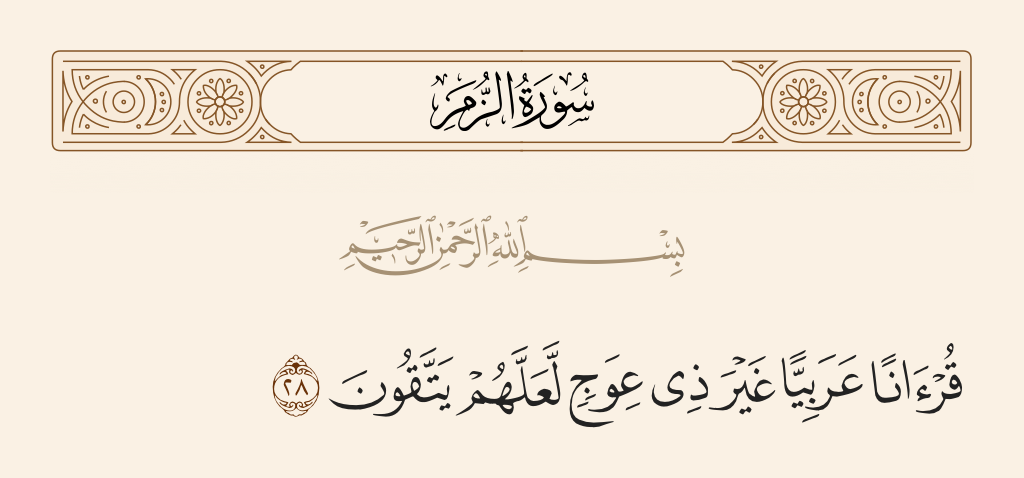 سُورَةُ الزُّمَرِ
بِسْمِ ٱللَّهِ ٱلرَّحْمَٰنِ ٱلرَّحِيمِ
قُرْءَانًا عَرَبِيًّا غَيْرَ ذِى عِوَجٍ لَّعَلَّهُمْ يَتَّقُونَ ٢٨